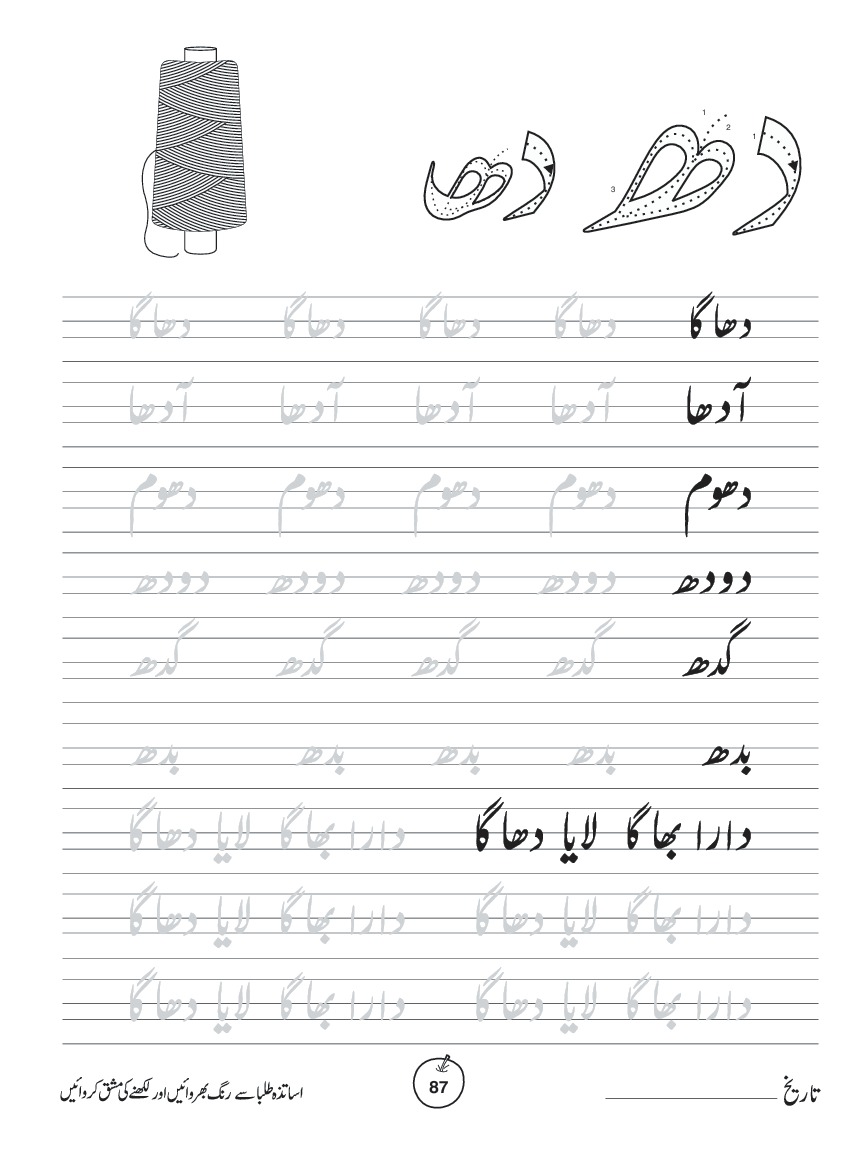 دھ دھا
1 2 1 3
دھاگا دھاگا دھاگا دھاگا دھاگا
آدھا آدھا آدھا آدھا آدھا
دھوم دھوم دھوم دھوم دھوم
دودھ دودھ دودھ دودھ دودھ
گدھ گدھ گدھ گدھ گدھ
بدھ بدھ بدھ بدھ بدھ
دارا بھاگا لایا دھاگا دارا بھاگا لایا دھاگا
دارا بھاگا لایا دھاگا دارا بھاگا لایا دھاگا
دارا بھاگا لایا دھاگا دارا بھاگا لایا دھاگا
تاریخ
87
اساتذہ طلبا سے رنگ بھروائیں اور لکھنے کی مشق کروائیں